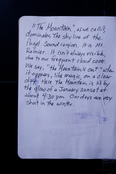 "The Mountain," as we call it,
dominates the skyline of the
Puget Sound region. It is Mt.
Rainier. It isn't always visible,
due to our frequent cloud cover.
We say, "the Mountain is out" when
it appears, like magic, on a clear
day. Here the Mountain is lit by
the glow of a January sunset at
about 4:30 pm. Our days are very
short in the winter.